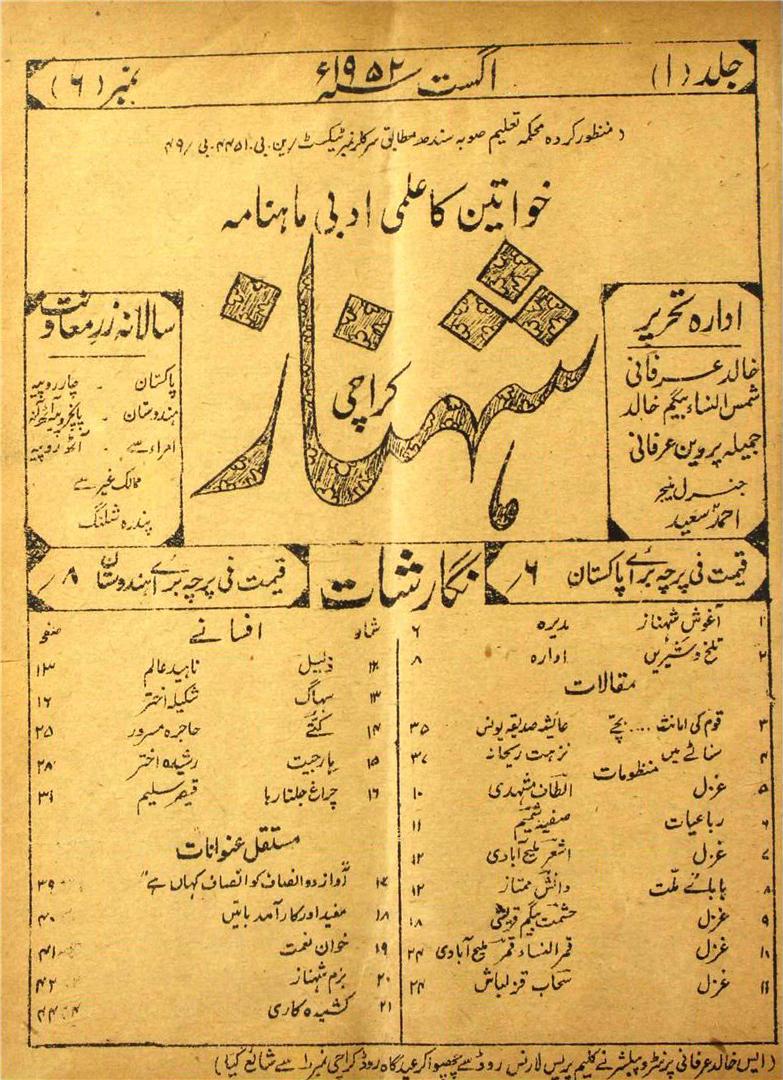 جلد (۱)
اگست ۱۹۵۲ء
نمبر (۶)
(منظور کردہ محکمہ تعلیم صوبہ سندھ مطابق سرکلر نمبر ٹیکسٹ / ین. بی. ۴۴۵۱. بی / ۴۹)
خواتین کا علمی ادبی ماہنامہ
شہناز
کراچی
ادارہ تحریر
خالد عرفانی
شمس النساء بیگم خالد
جمیلہ پروین عرفانی
جنرل منیجر
احمد سعید
سالانہ زر معاونت
پاکستان - چار روپیہ
ہندوستان - پانچروپیہ آٹھ آنہ
امراء سے - آٹھ روپیہ
ممالک غیر سے
پندرہ شلنگ
قیمت فی پرچہ برائے پاکستان ۶/
نگارشات
قیمت فی پرچہ برائے ہندوستان ۸/
۱ آغوش شہناز مدیرہ ۶
۲ تلخ و شیریں ادارہ ۸
مقالات
۳ قوم کی امانت .... بچے عائشہ صدیقہ یونس ۳۵
۴ سناٹے میں نزہت ریحانہ ۳۷
منظومات
۵ غزل الطاف مشہدی ۱۰
۶ رباعیات صفیہ شمیم ۱۱
۷ غزل اشعر ملیح آبادی ۱۲
۸ بابائے ملت دانش ممتاز ۱۲
۹ غزل حشمت بیگم قریشی ۱۸
۱۰ غزل قمر النساء قمر ملیح آبادی ۲۴
۱۱ غزل سحاب قزلباش ۲۴
شمار افسانے صفحہ
۱۲ ذلیل ناہید عالم ۱۳
۱۳ سہاگ شکیلہ اختر ۱۶
۱۴ کتے حاجرہ مسرور ۲۵
۱۵ ہار جیت رشیدہ اختر ۲۸
۱۶ چراغ جلتا رہا قیصر سلیم ۳۱
مستقل عنوانات
۱۷ "آواز دو انصاف کو انصاف کہاں ہے" ۳۹
۱۸ مفید اور کار آمد باتیں ۴۰
۱۹ خوان نعمت ۴۱
۲۰ بزم شہناز ۴۲
۲۱ کشیدہ کاری ۴۴
(ایس خالد عرفانی پرنٹر و پبلشر نے کلیم پریس لارنس روڈ سے چھپوا کر عید گاہ روڈ کراچی نمبر ۱ سے شائع کیا)